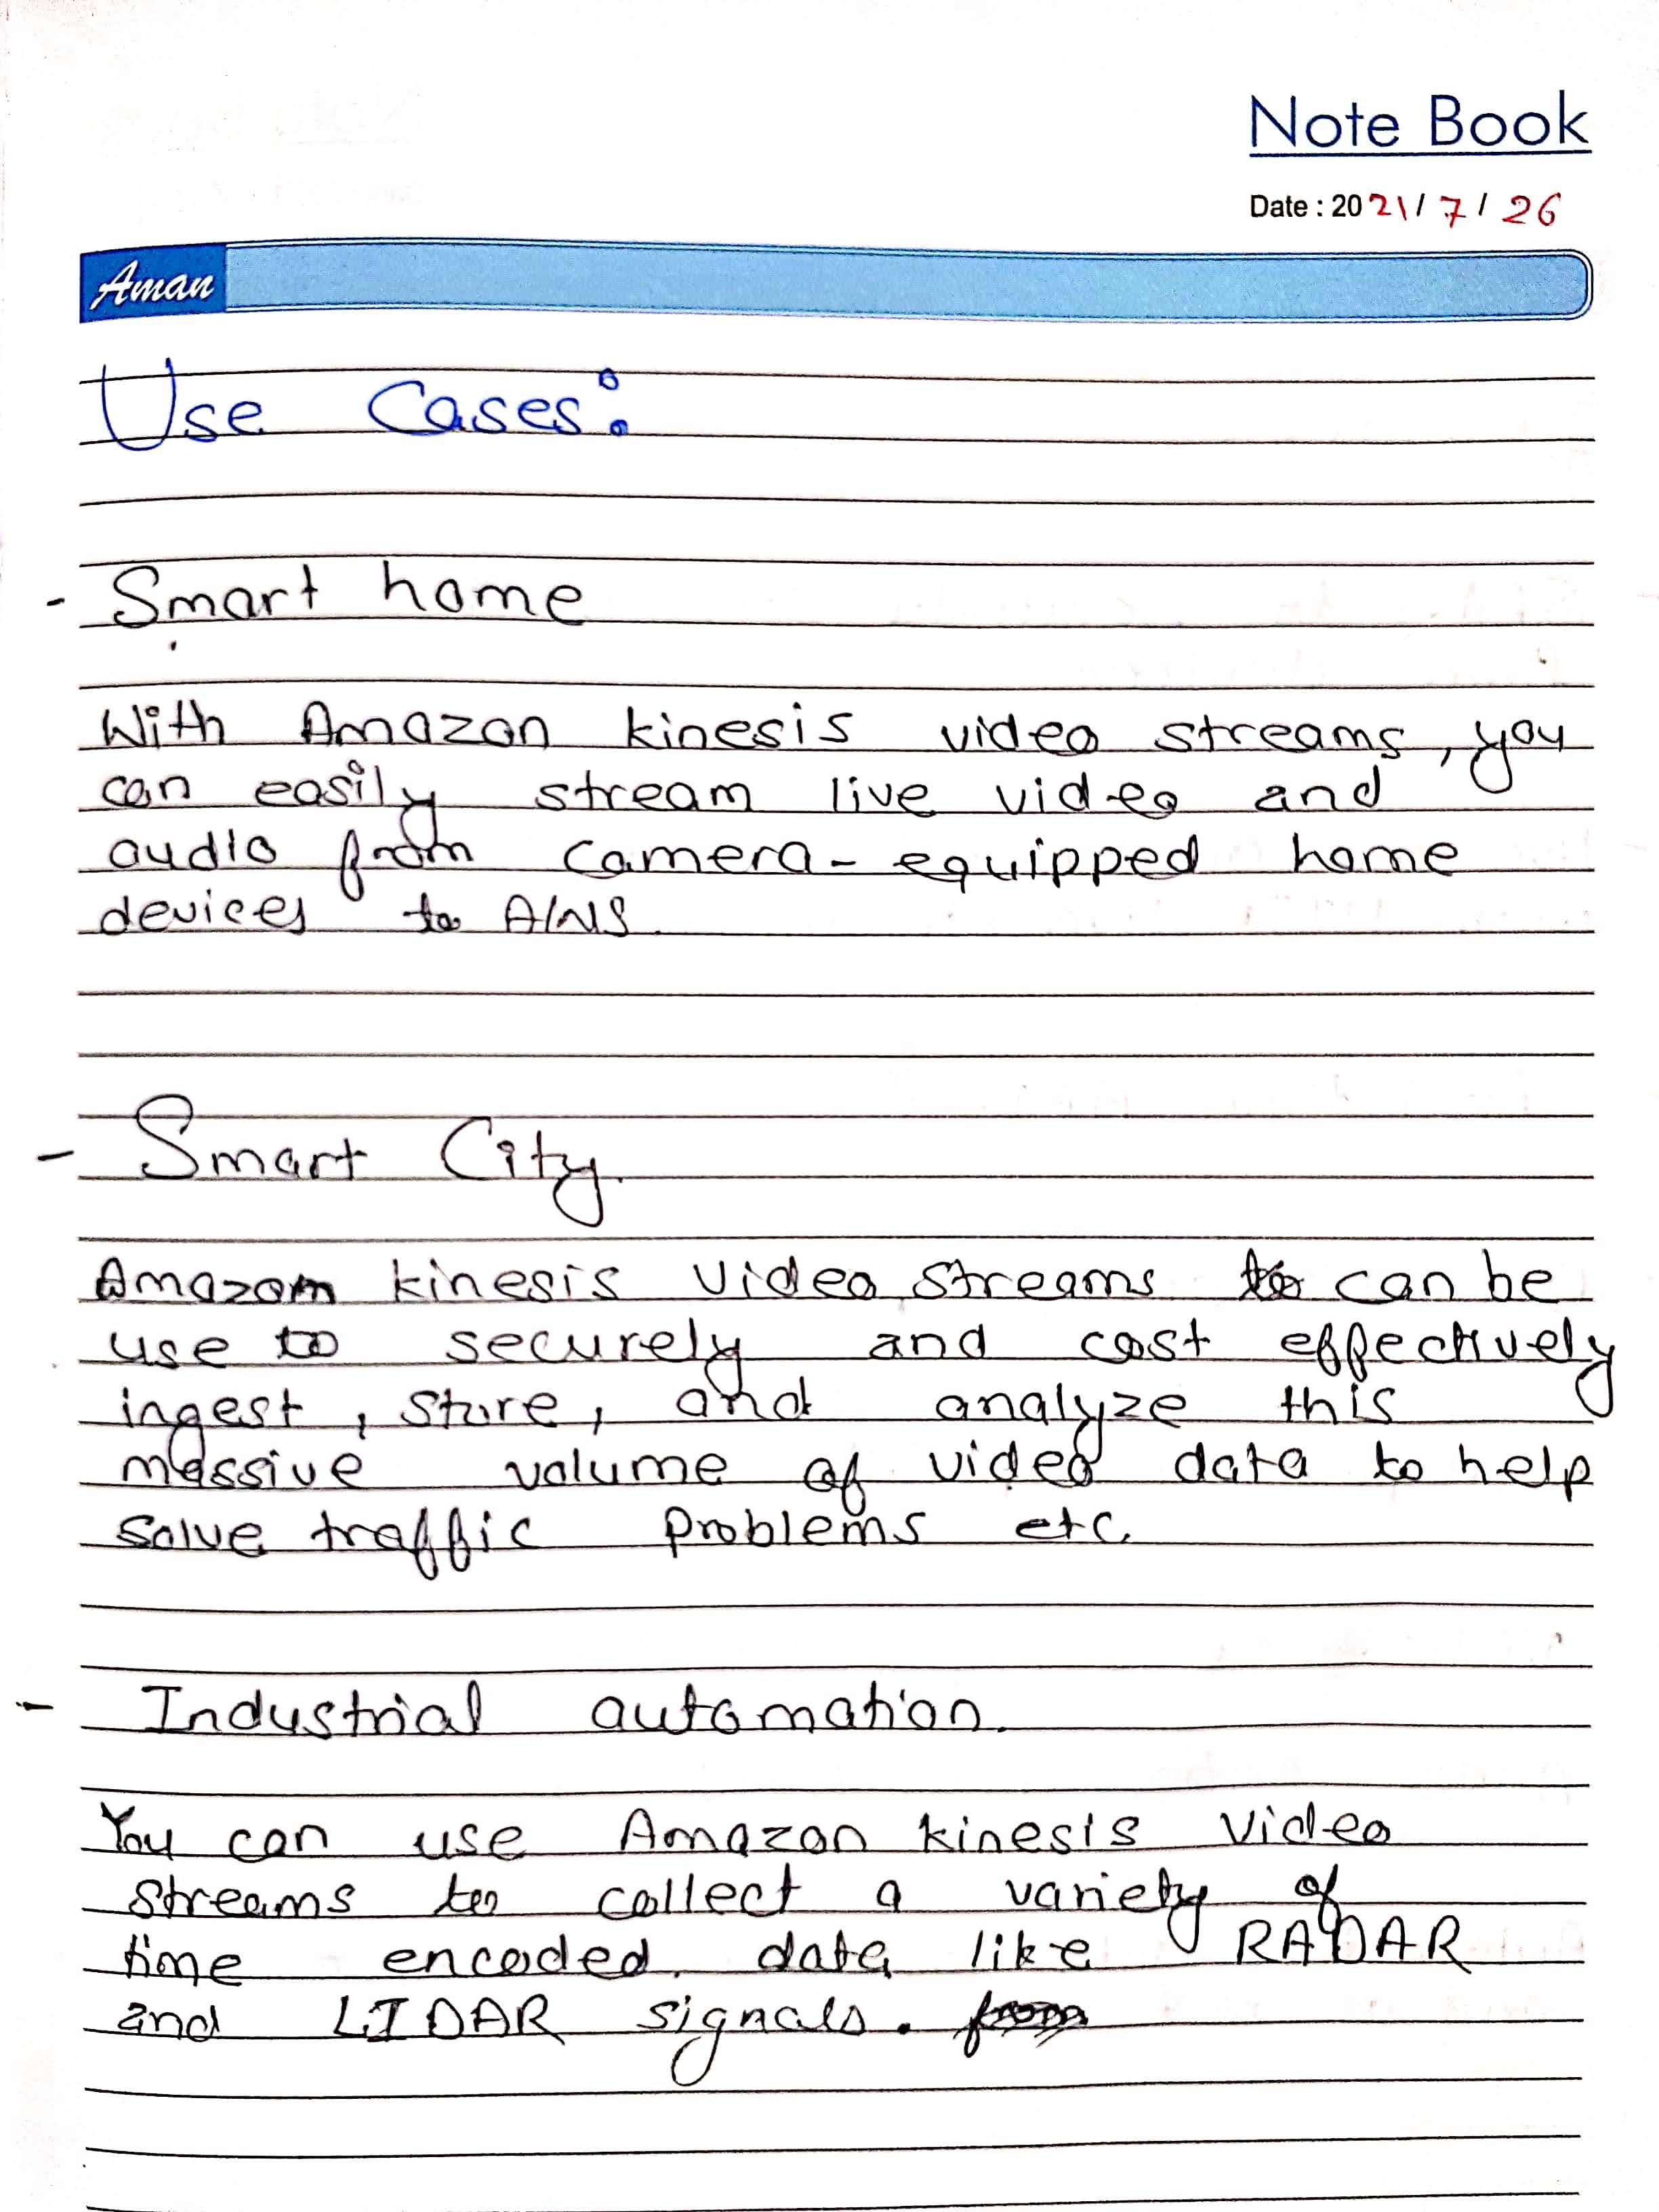 Note Book
Date : 2021/7/26
Aman
Use Cases:
- Smart home
With Amazon kinesis video streams, you
can easily stream live video and
audio from camera-equipped home
devices to AWS.
- Smart City.
Amazom kinesis Video streams can be
use to securely and cost effectively
ingest, store, and analyze this
massive volume of video data to help
solve traffic problems etc.
- Industrial automation.
You can use Amazon kinesis Video
streams to collect a variety of
time encoded data like RADAR
and LIDAR signals.